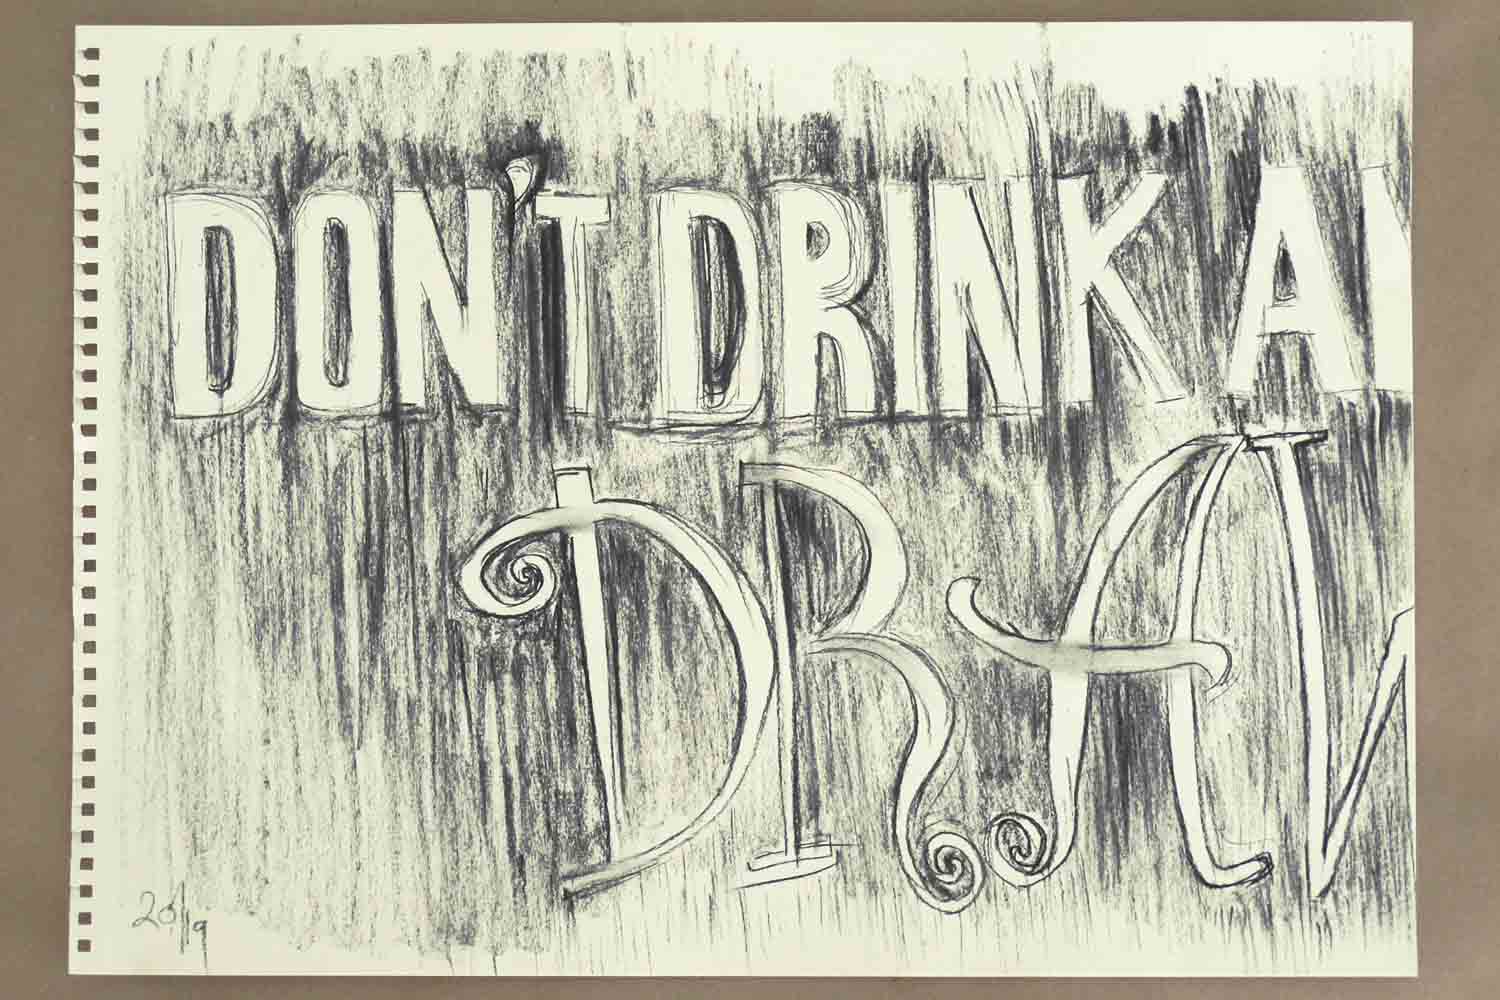 DON'T DRINK AN
DRAW
20/19